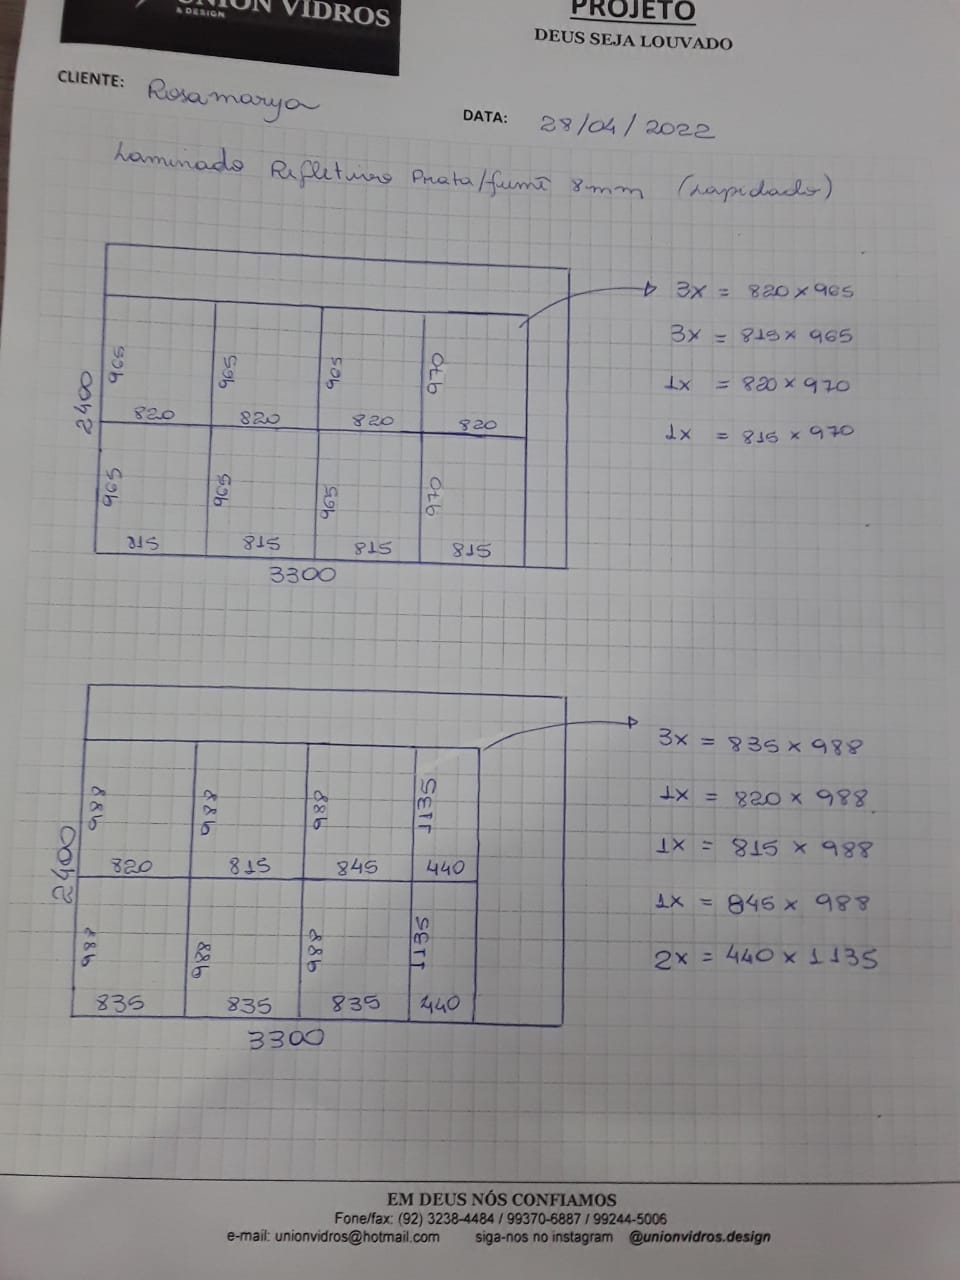 UNION VIDROS
& DESIGN
PROJETO
DEUS SEJA LOUVADO
CLIENTE: Rosamarya
DATA: 28/04/2022
Laminado Refletivo Prata/fumê 8mm (Lapidado)
3x = 820 x 965
3x = 815 x 965
1x = 820 x 970
1x = 815 x 970
2400
965 965 965 970
820 820 820 820
965 965 965 970
815 815 815 815
3300
3x = 835 x 988
1x = 820 x 988
1x = 815 x 988
1x = 845 x 988
2x = 440 x 1135
2400
988 988 988 1135
820 815 845 440
988 988 988 1135
835 835 835 440
3300
EM DEUS NÓS CONFIAMOS
Fone/fax: (92) 3238-4484 / 99370-6887 / 99244-5006
e-mail: unionvidros@hotmail.com siga-nos no instagram @unionvidros.design